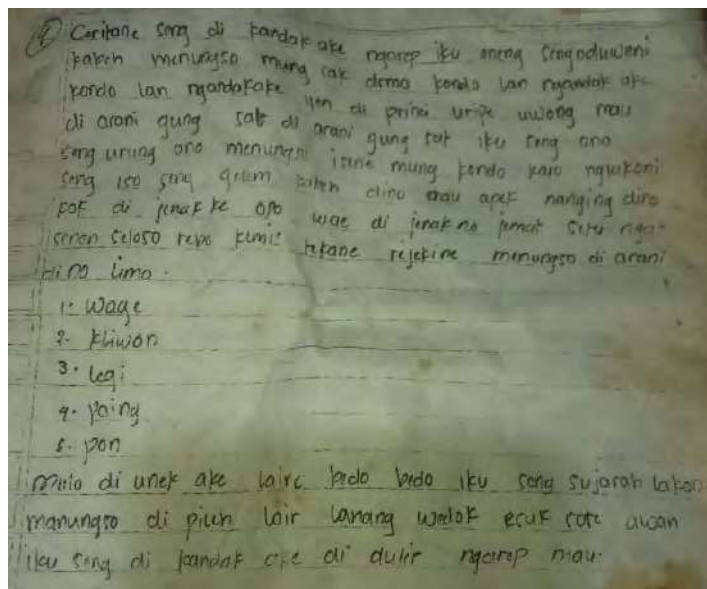 ④ Caritane seng di kandak ake ngarep iku oneng sengoduweni
kabeh menungso mung sak dermo kondo lan ngandak ake
kondo lan ngandakake yen di princi uripe uwong mau
di arani gung sak di arani gung sak iku seng ono
seng urung ono menungso isine mung kondo karo nglakoni
seng iso seng gelem kabeh dino mau apek nanging dino
kok di jenak ke opo wae di jenak no jemuah setu nga-
senen seloso rebo kemis tekane rejekine menungso di arani
dino limo.
1. wage
2. kliwon
3. legi
4. paing
5. pon
mulo di unek ake laire bedo bedo iku seng sujarah lakon
manungso di pileh lair lanang wedok esuk sore awan
iku seng di kandak ake di dulir ngarep mau.